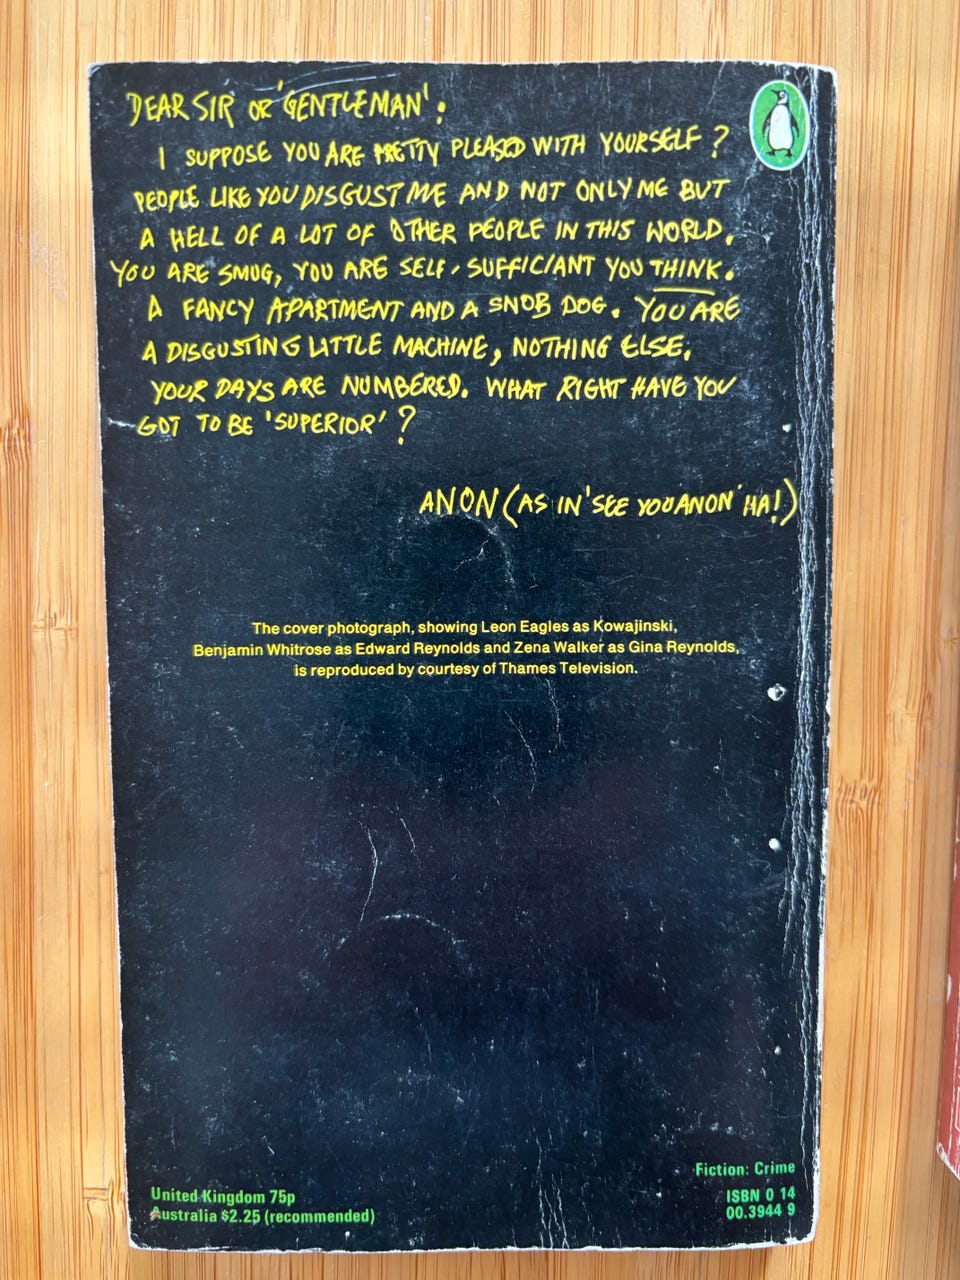 DEAR SIR OR 'GENTLEMAN':
I SUPPOSE YOU ARE PRETTY PLEASED WITH YOURSELF?
PEOPLE LIKE YOU DISGUST ME AND NOT ONLY ME BUT
A HELL OF A LOT OF OTHER PEOPLE IN THIS WORLD.
YOU ARE SMUG, YOU ARE SELF-SUFFICIANT YOU THINK.
A FANCY APARTMENT AND A SNOB DOG. YOU ARE
A DISGUSTING LITTLE MACHINE, NOTHING ELSE.
YOUR DAYS ARE NUMBERED. WHAT RIGHT HAVE YOU
GOT TO BE 'SUPERIOR'?
ANON (AS IN 'SEE YOU ANON' HA!)
The cover photograph, showing Leon Eagles as Kowajinski,
Benjamin Whitrose as Edward Reynolds and Zena Walker as Gina Reynolds,
is reproduced by courtesy of Thames Television.
Fiction: Crime
United Kingdom 75p
Australia $2.25 (recommended)
ISBN 0 14
00.3944 9